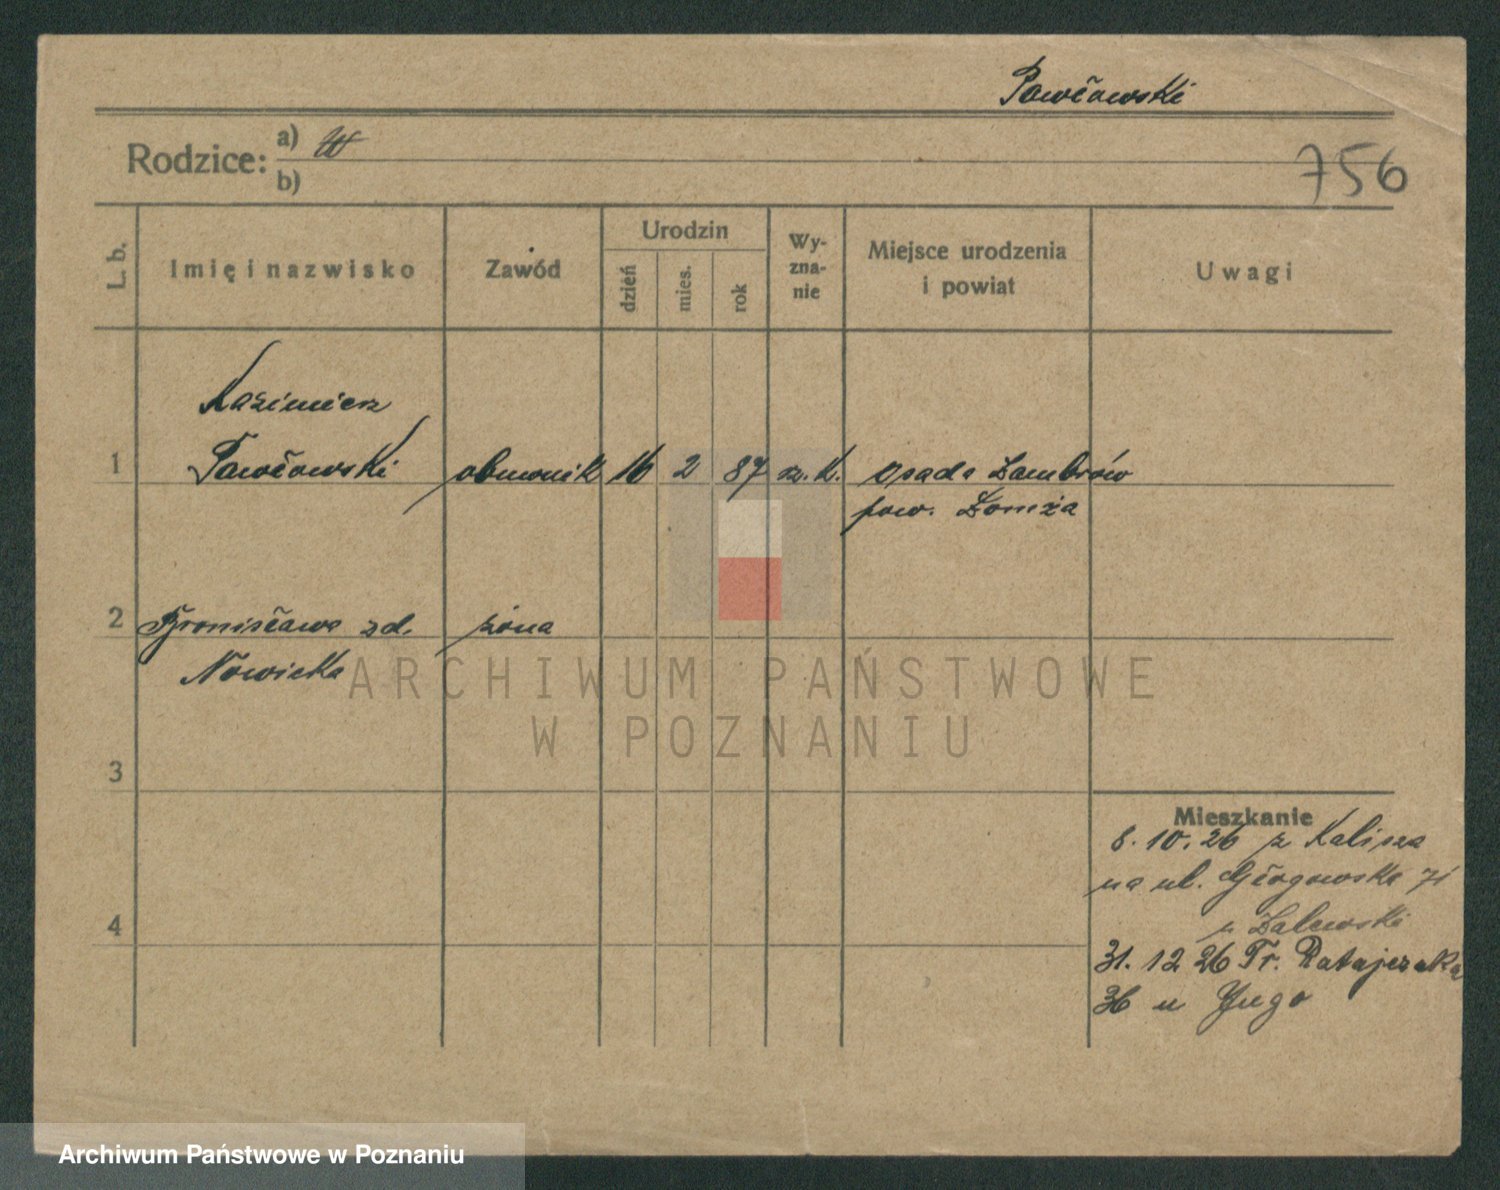 Pawłowski
Rodzice: a)
b)
756
L. b.
Imię i nazwisko
Zawód
Urodzin
dzień
mies.
rok
Wy-
zna-
nie
Miejsce urodzenia
i powiat
Uwagi
Kazimierz
1 Pawłowski obuwnik 16 2 87 rz. k. Osada Zambrów
pow. Łomża
2 Bronisława zd. żona
Nowicka
ARCHIWUM PAŃSTWOWE
W POZNANIU
3
Mieszkanie
8. 10. 26 z Kalisza
na ul. Głogowska 71
u Zalewski
4
31. 12 26 Fr. Ratajczaka
36 u Yugo
Archiwum Państwowe w Poznaniu